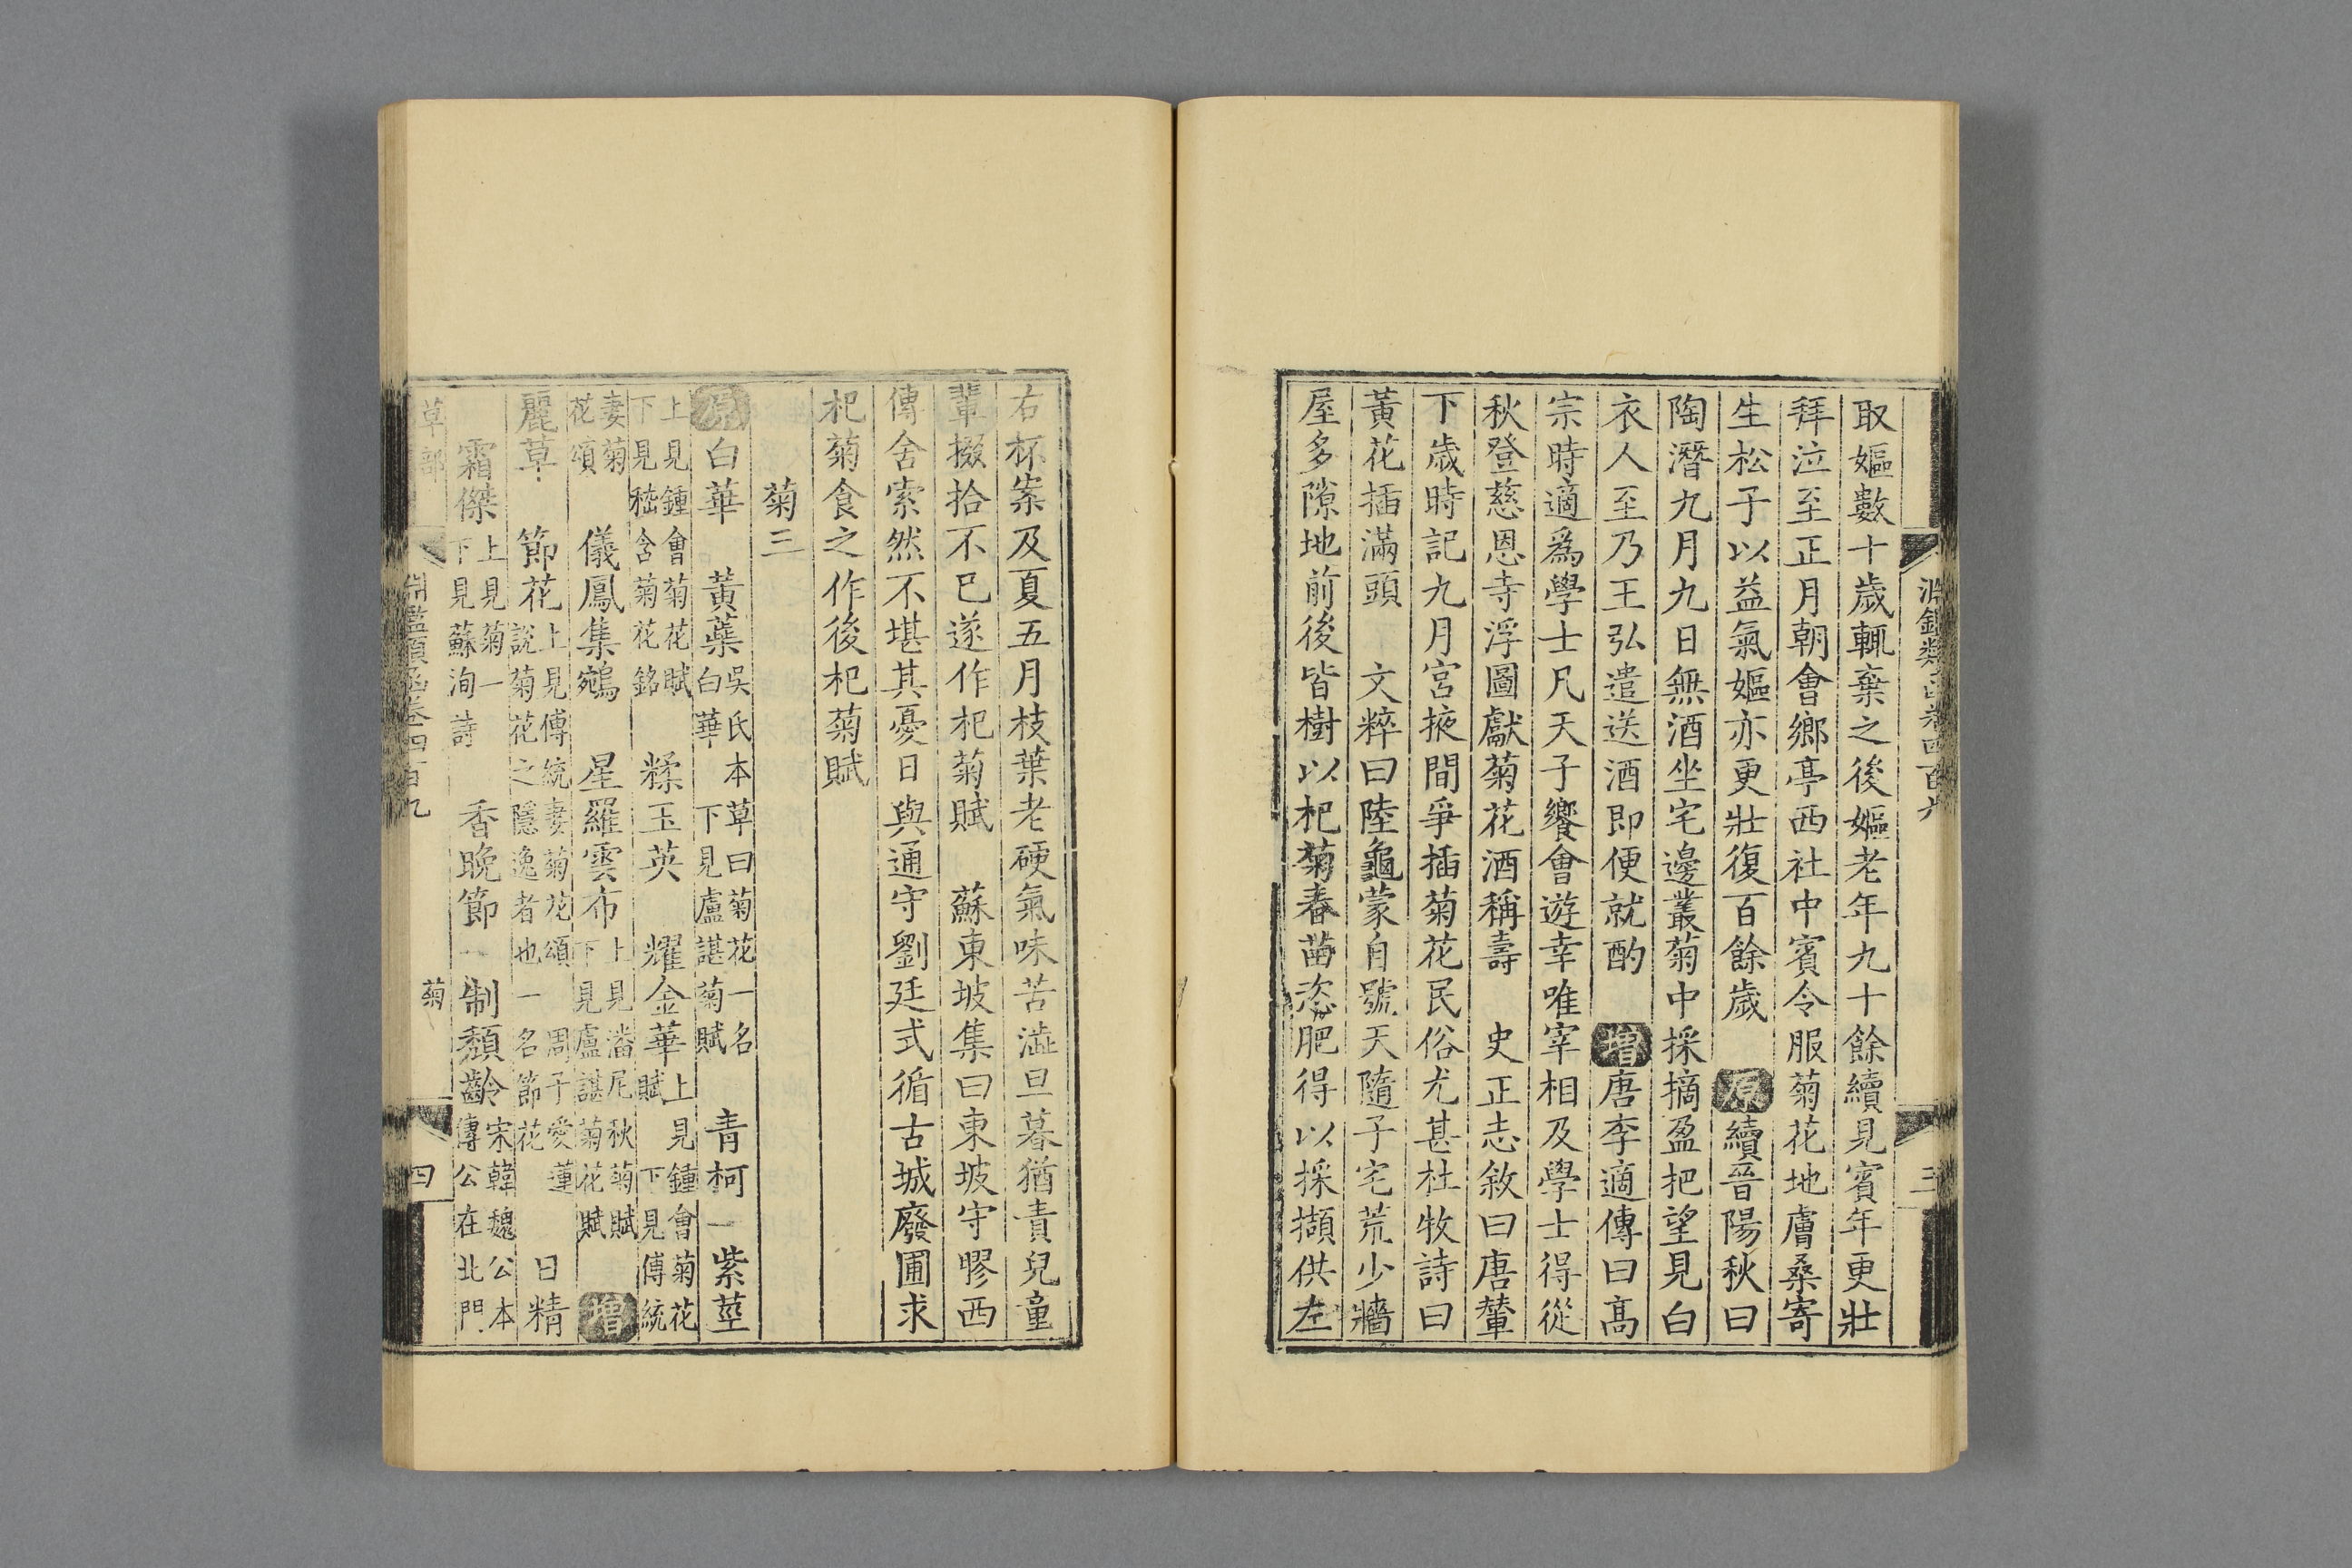 取嫗數十歲輒棄之後嫗老年九十餘續見賓年更壯
拜泣至正月朝會鄉亭西社中賓令服菊花地膚桑寄
生松子以益氣嫗亦更壯復百餘歲 原續晉陽秋曰
陶潛九月九日無酒坐宅邊叢菊中採摘盈把望見白
衣人至乃王弘遣送酒即便就酌 增唐李適傳曰髙
宗時適爲學士凡天子饗會遊幸唯宰相及學士得從
秋登慈恩寺浮圖獻菊花酒稱壽 史正志敘曰唐輦
下歲時記九月宮掖間爭插菊花民俗尤甚杜牧詩曰
黃花插滿頭 文粹曰陸龜蒙自號天隨子宅荒少牆
屋多隙地前後皆樹以杞菊春苗恣肥得以採擷供左
右杯案及夏五月枝葉老硬氣味苦澁旦暮猶責兒童
輩掇拾不已遂作杞菊賦 蘇東坡集曰東坡守膠西
傳舍索然不堪其憂日與通守劉廷式循古城廢圃求
杞菊食之作後杞菊賦
菊三
原白華 黃蘂吳氏本草曰菊花一名白華 下見盧諶菊賦 青柯 紫莖
上見鍾會菊花賦下見嵇含菊花銘 糅玉英 耀金華上見鍾會菊花賦 下見傅統
妻菊花頌 儀鳳集鵷 星羅雲布上見潘尼秋菊賦下見盧諶菊花賦 增
麗草 節花上見傅統妻菊花頌 周子愛蓮說菊花之隱逸者也一名節花 日精
霜傑上見菊一下見蘇洵詩 香晚節 制頹齡宋韓魏公本傳公在北門
草部 淵鑑類函卷四百九 菊 四